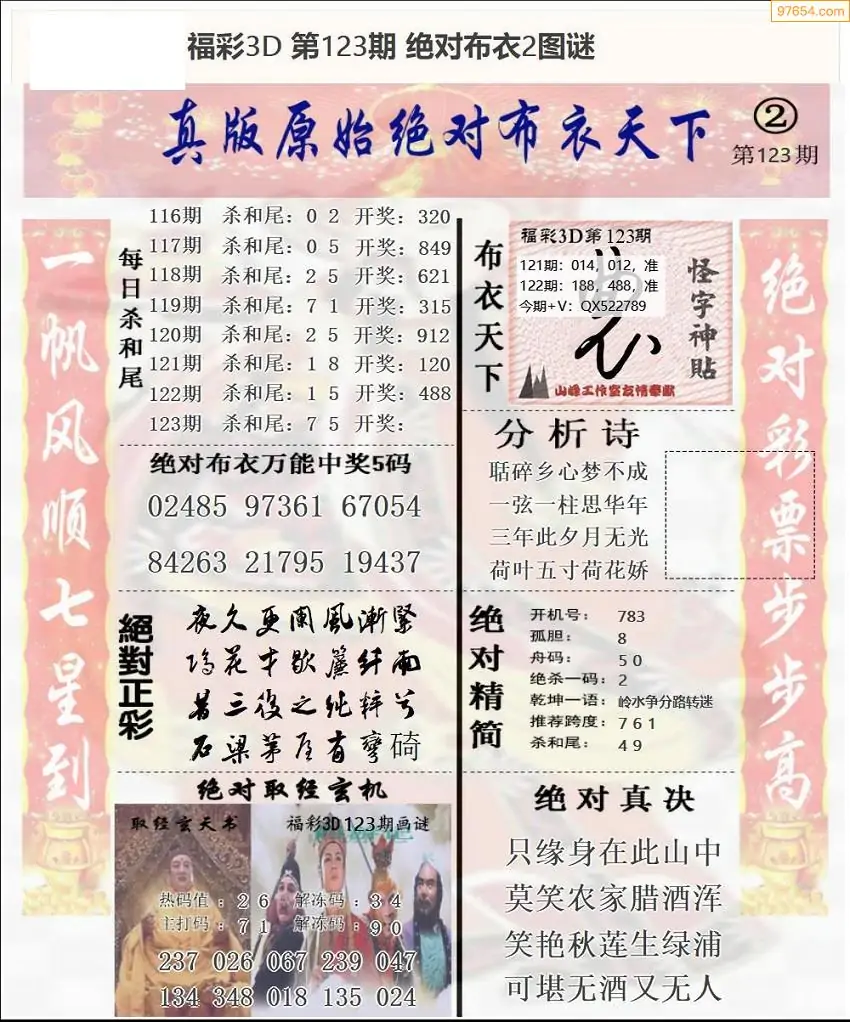 97654.com
福彩3D 第123期 绝对布衣2图谜
真版原始绝对布衣天下
②
第123期
一帆风顺七星到
每日杀和尾
116期 杀和尾：0 2 开奖：320
117期 杀和尾：0 5 开奖：849
118期 杀和尾：2 5 开奖：621
119期 杀和尾：7 1 开奖：315
120期 杀和尾：2 5 开奖：912
121期 杀和尾：1 8 开奖：120
122期 杀和尾：1 5 开奖：488
123期 杀和尾：7 5 开奖：
布衣天下
福彩3D第123期
121期：014，012，准
122期：188，488，准
今期+V：QX522789
怪字神贴
山峰工作室友情奉献
绝对布衣万能中奖5码
02485 97361 67054
84263 21795 19437
分析诗
聒碎乡心梦不成
一弦一柱思华年
三年此夕月无光
荷叶五寸荷花娇
絕對正彩
夜久更阑風漸緊
為花才歇簾纤雨
昔三後之纯粹兮
石梁茅屋有弯碕
绝对精简
开机号： 783
孤胆： 8
舟码： 5 0
绝杀一码：2
乾坤一语：岭水争分路转迷
推荐跨度：7 6 1
杀和尾： 4 9
绝对取经玄机
取经玄天书
福彩3D123期画谜
热码值：2 6 解冻码：3 4
主打码：7 1 解冻码：9 0
237 026 067 239 047
134 348 018 135 024
绝对真决
只缘身在此山中
莫笑农家腊酒浑
笑艳秋莲生绿浦
可堪无酒又无人
绝对彩票步步高